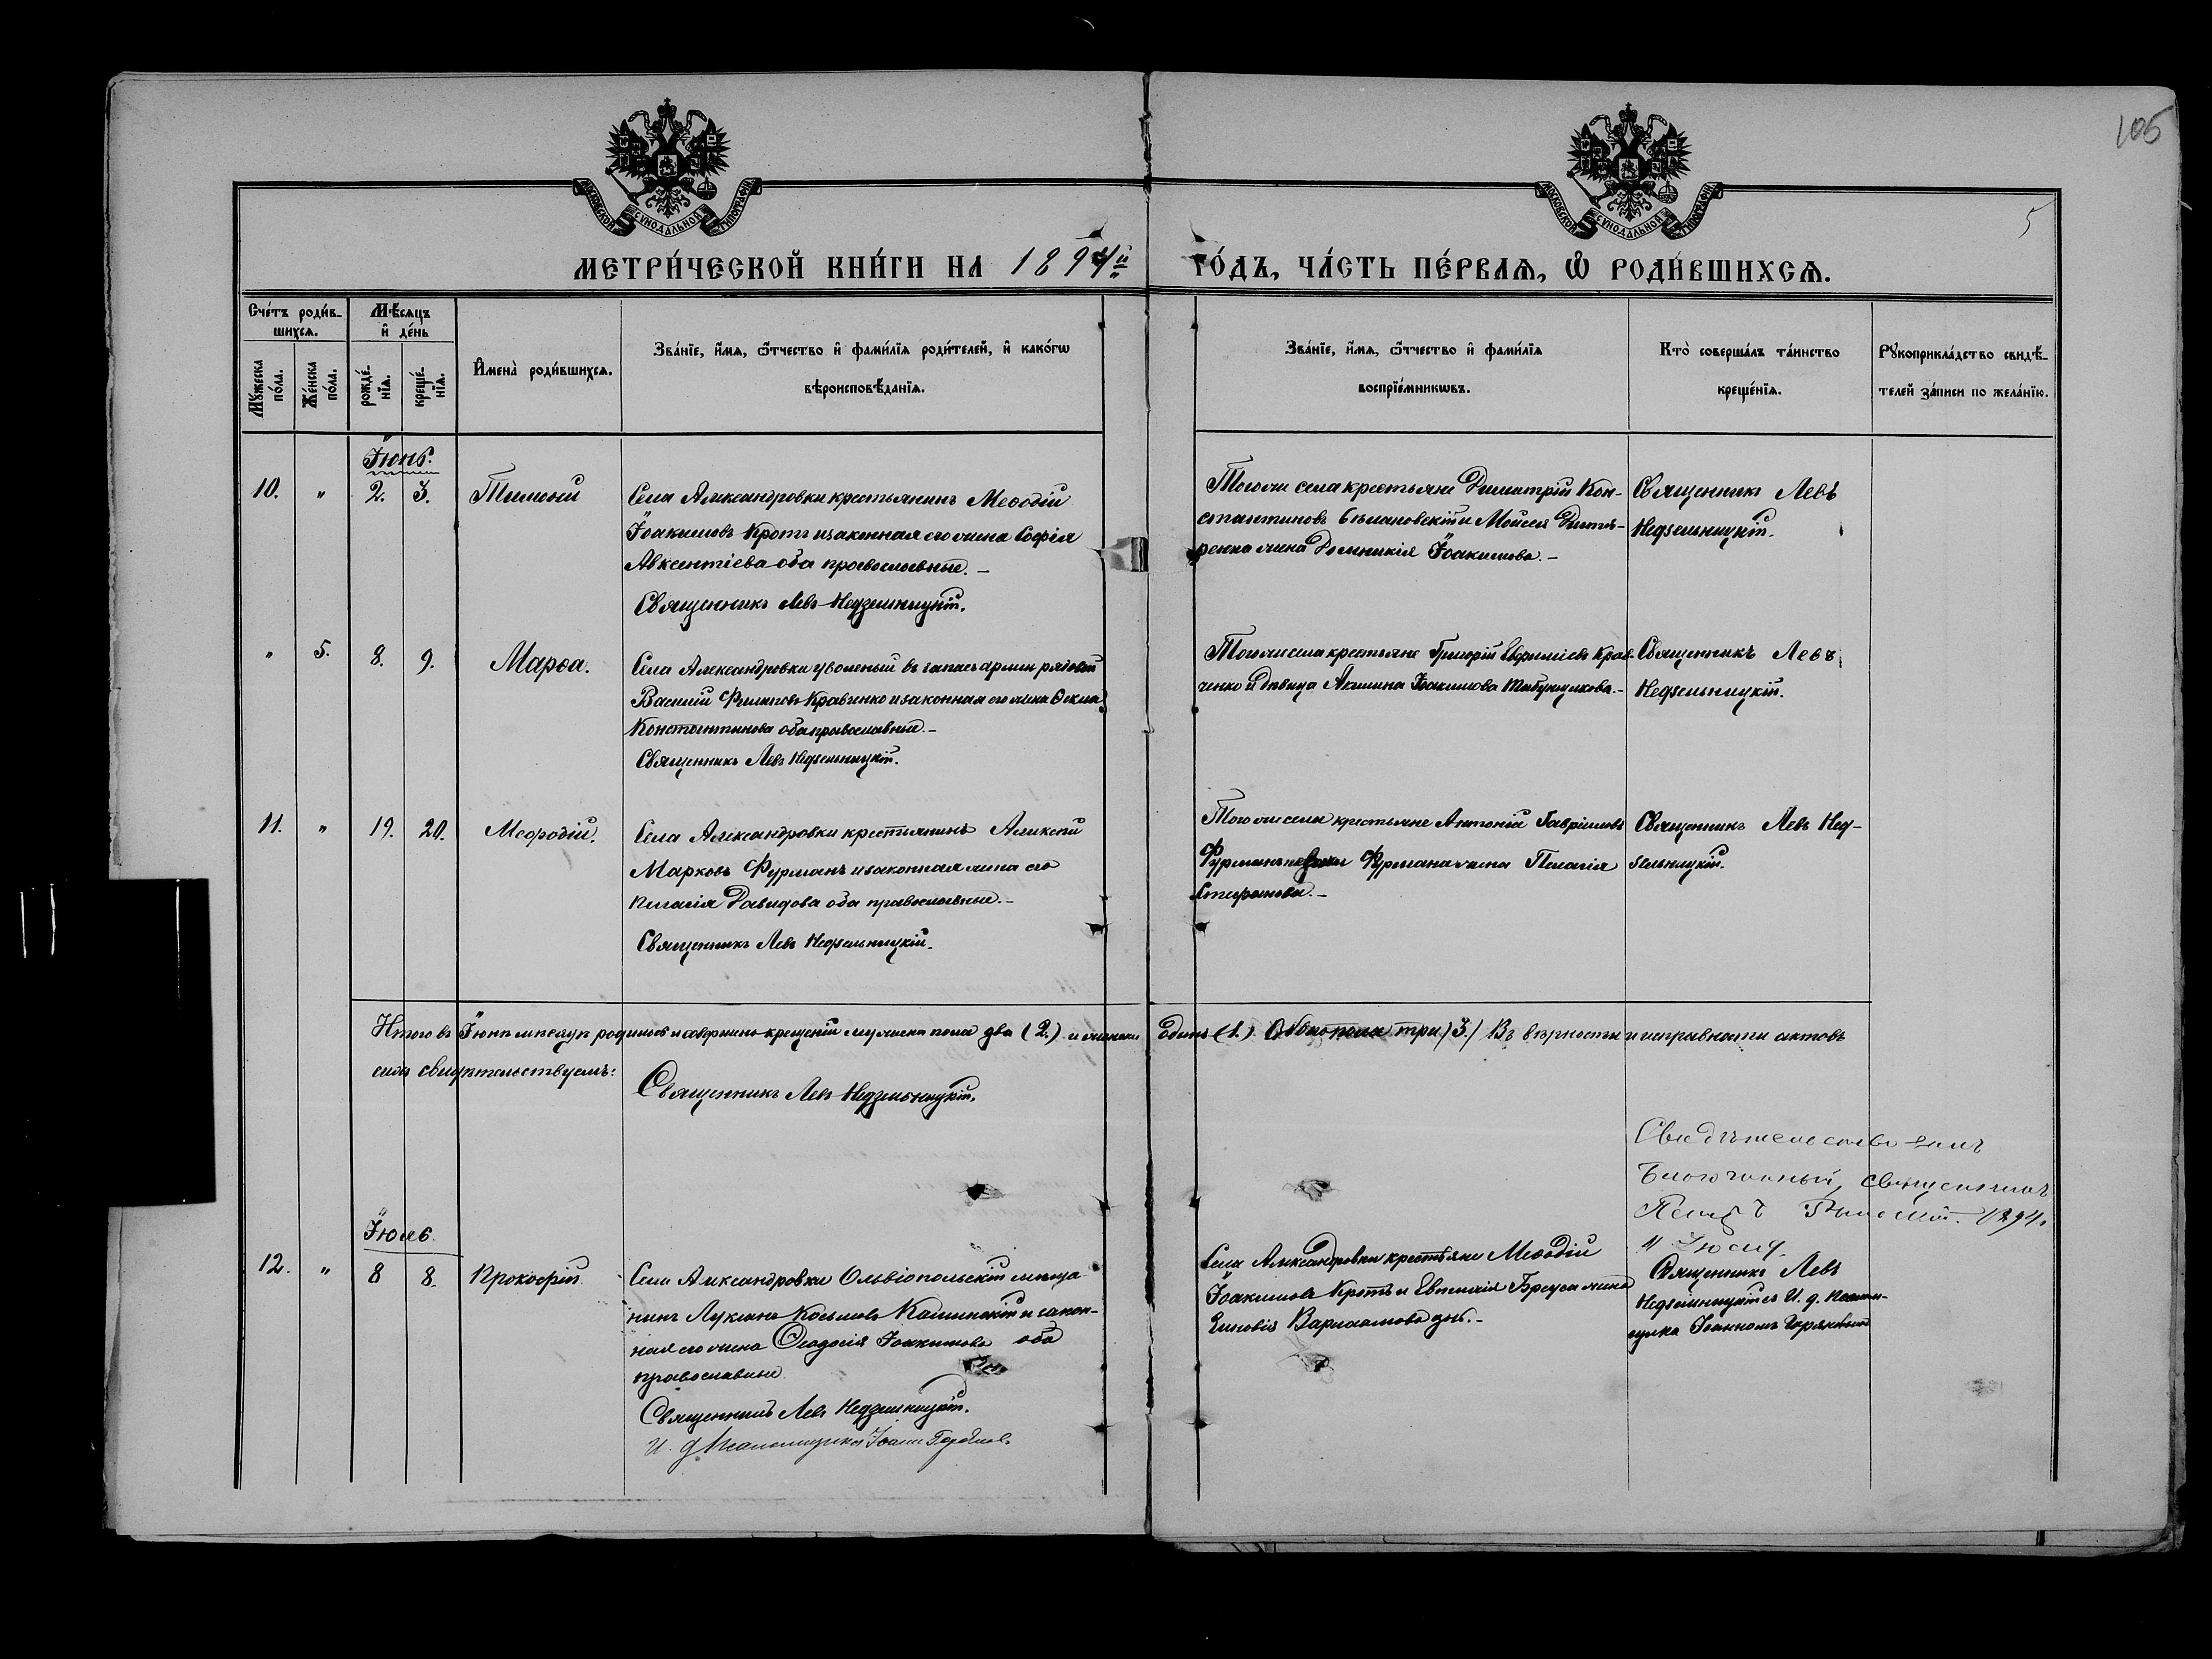 105
5
МОСКОВСКОЙ СѴНОДАЛЬНОЙ ТИПОГРАФІИ
МОСКОВСКОЙ СѴНОДАЛЬНОЙ ТИПОГРАФІИ
МЕТРИ́ЧЕСКОЙ КНИ́ГИ НА 1894й ГО́ДЪ, ЧА́СТЬ ПЕ́РВАѦ, Ѿ РОДИ́ВШИХСѦ.
Сче́тъ роди́в-
шихсѧ.
Мѣ́сѧцъ
и҆ де́нь
Мꙋ́жеска по́ла.
Же́нска по́ла.
рожде́-
нїѧ.
креще́-
нїѧ.
И҆мена̀ роди́вшихсѧ.
Зва́нїе, и҆́мѧ, ѻ҆́тчество и҆ фами́лїѧ роди́телей, и҆ како́гѡ
вѣроисповѣ́данїѧ.
Зва́нїе, и҆́мѧ, ѻ҆́тчество и҆ фами́лїѧ
воспрїе́мникѡвъ.
Кто̀ соверша́лъ та́инство
креще́нїѧ.
Рꙋкоприкла́дство свидѣ́-
телей за́писи по жела́нїю.
Іюнь.
10. " 2. 3. Тимоѳій
Села Александровки крестьянинъ Меѳодій
Іоакимовъ Кротъ и законная его жена Софія
Авксентіева оба православные. –
Священникъ Левъ Недзельницкій.
Того же села крестьяне Димитрій Кон-
стантиновъ и Моисея
жена Домникія Іоакимова. –
Священникъ Левъ
Недзельницкій.
" 5. 8. 9. Марѳа.
Села Александровки уволеный въ запасъ арміи рядовой
Василій Филиповъ Кравченко и законная его жена Ѳекла
Константинова оба православные. –
Священникъ Левъ Недзельницкій.
Того же села крестьяне Григорій Евфиміевъ Крав-
ченко и дѣвица Акилина Іоакимова Табунщикова. –
Священникъ Левъ
Недзельницкій.
11. " 19. 20. Меѳодій.
Села Александровки крестьянинъ Алексѣй
Марковъ Фурманъ и законная жена его
Пелагія Давидова оба православные. –
Священникъ Левъ Недзельницкій.
Того же села крестьяне Антоній Гавріиловъ
Фурманъ и Фурмана жена Пелагія
Стефанова. –
Священникъ Левъ Нед-
зельницкій.
Итого въ Іюнѣ мѣсяцѣ родилось и совершено крещеній мужеска пола два (2.) и женска одинъ (1.) Обоего пола три (3.) Въ вѣрности и исправности актовъ
силы свидѣтельствуемъ:
Священникъ Левъ Недзельницкій.
Благочинный, священникъ
1894.
Іюль.
12. " 8 8. Прокофій.
Села Александровки Ольвіопольскій мѣща-
нинъ Лукіанъ Косьмовъ Калинскій и закон-
ная его жена Ѳеодосія Іоакимова оба
православные.
Священникъ Левъ Недзельницкій.
И. д. псаломщика Іоаннъ
Села Александровки крестьяне Меѳодій
Іоакимовъ Кротъ и Евгенія Бреуса жена
Зиновія Варлаамова дочь. –
Священникъ Левъ
Недзельницкій съ И. д. псалом-
щика Іоанномъ